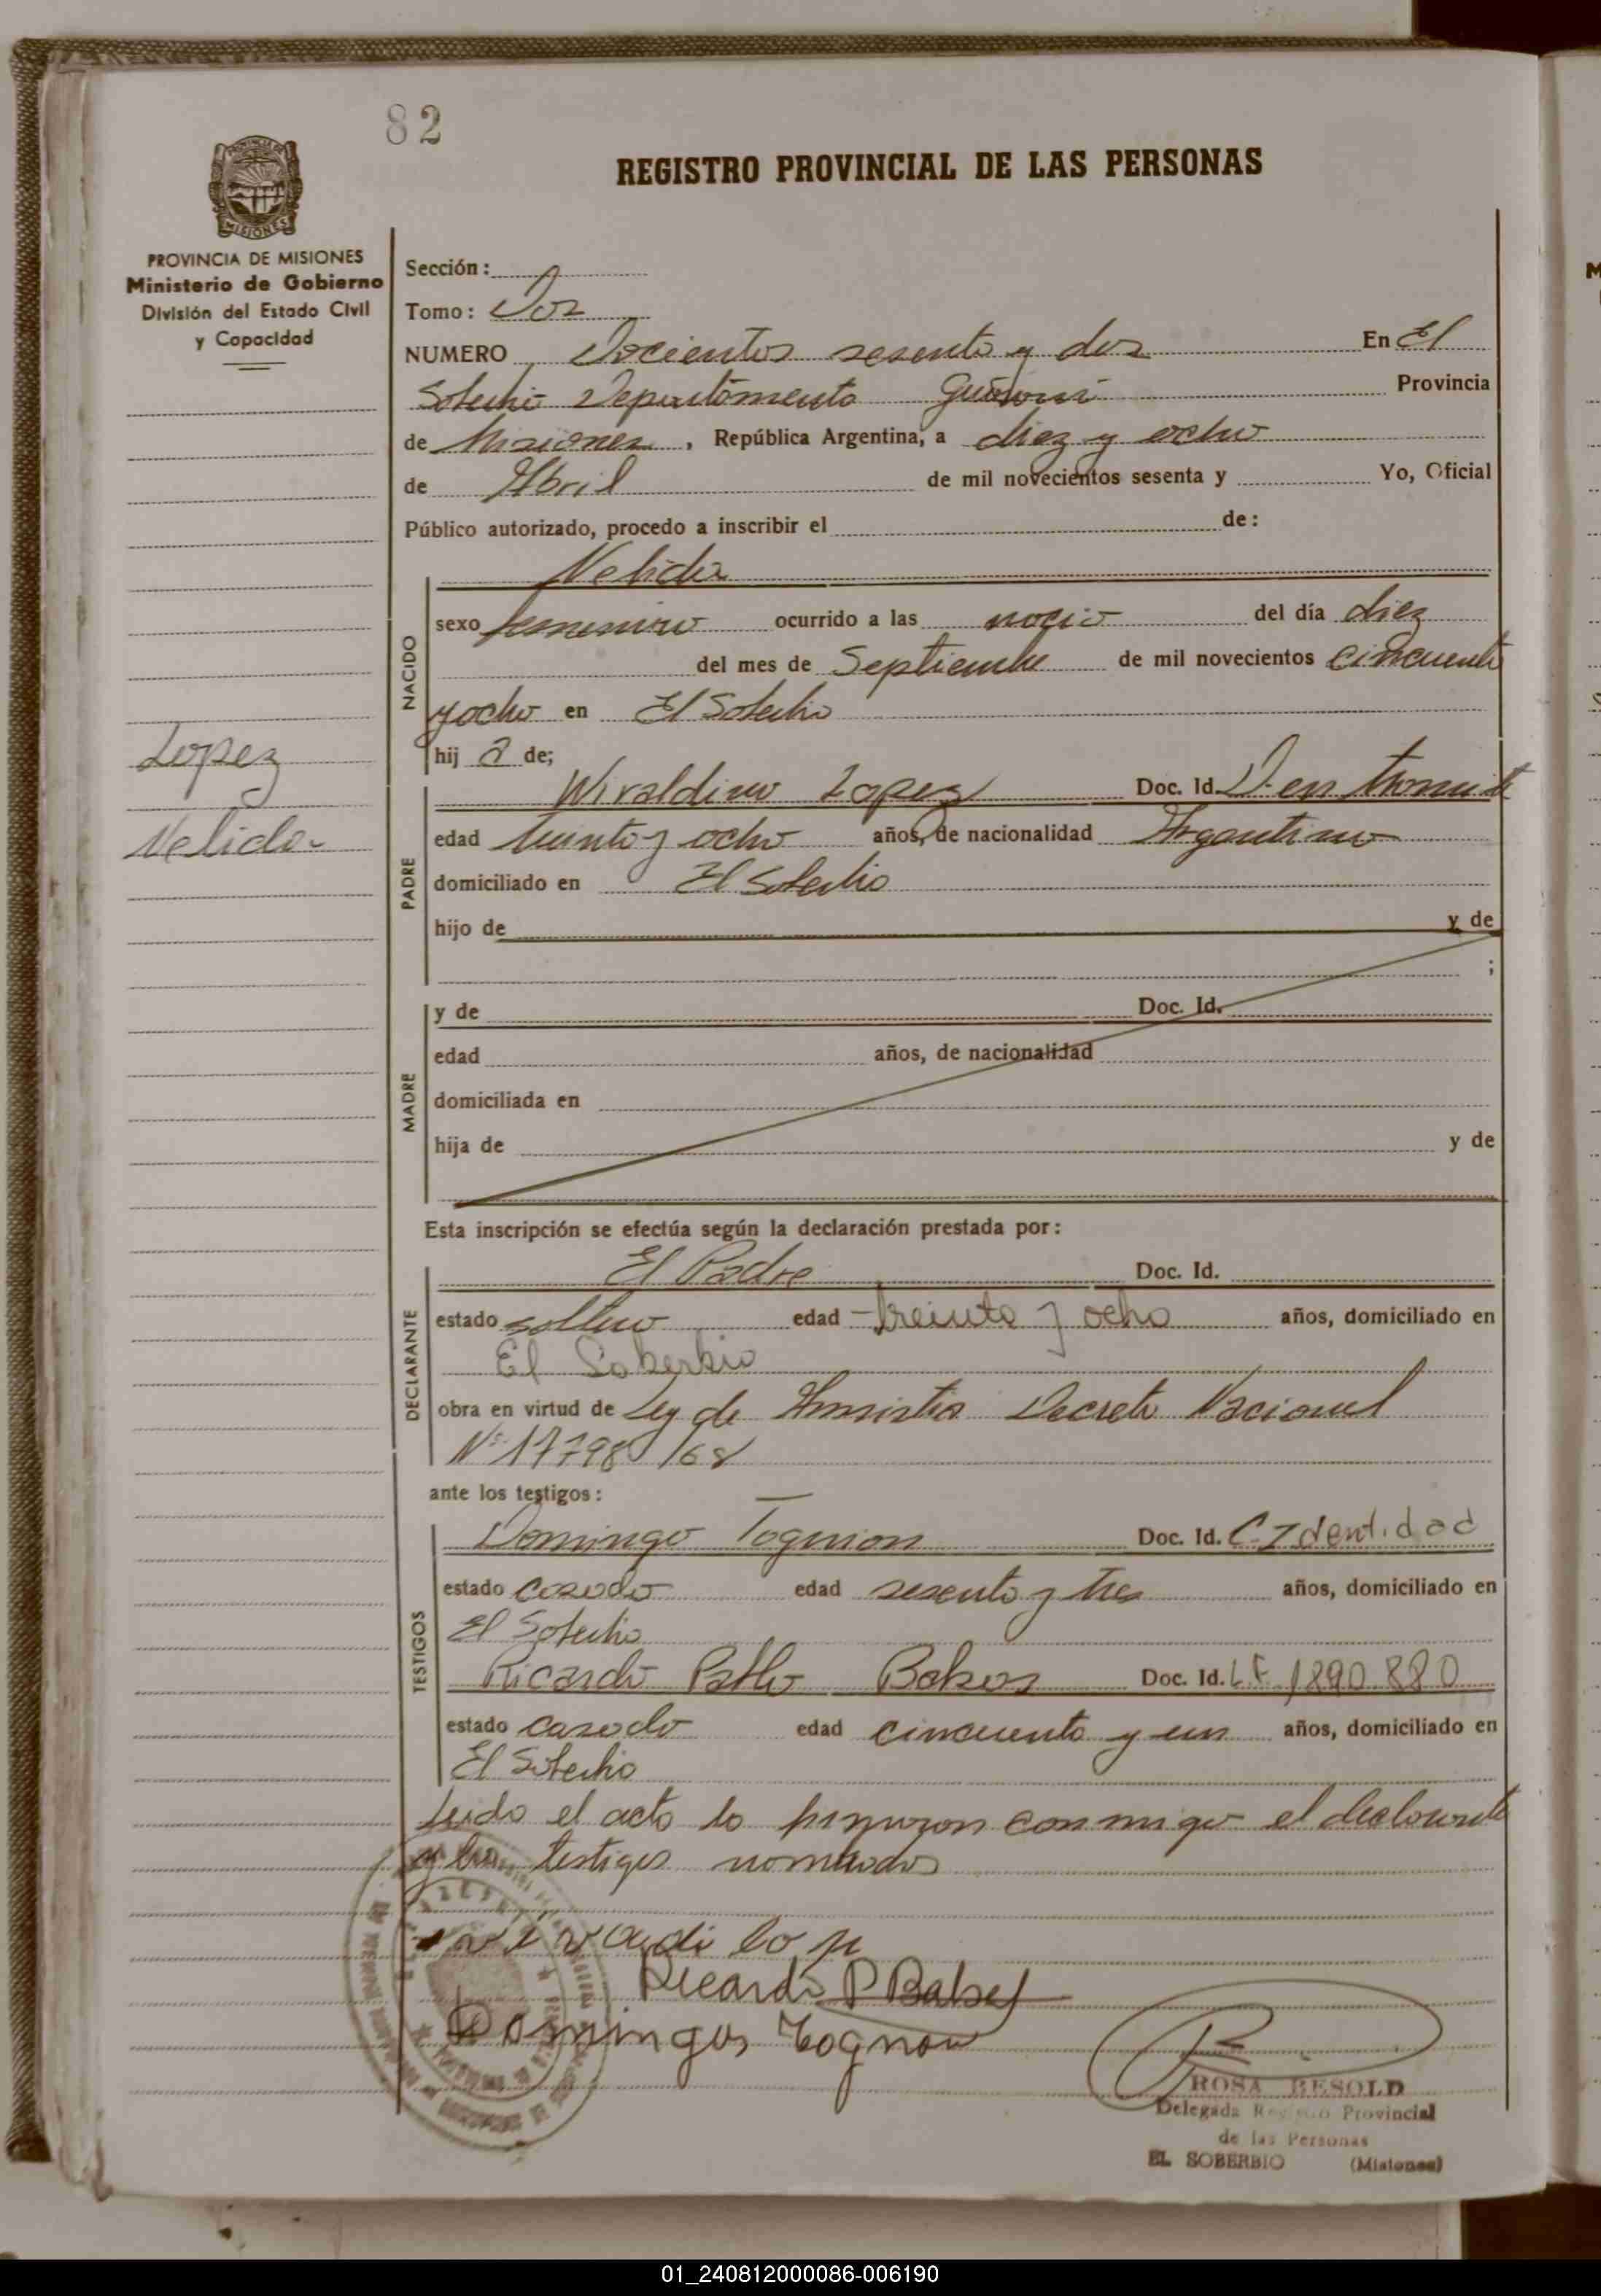 82
REGISTRO PROVINCIAL DE LAS PERSONAS
PROVINCIA DE MISIONES
MISIONES
PROVINCIA DE MISIONES
Ministerio de Gobierno
División del Estado Civil
y Capacidad
Lopez
Nelida
Sección:
Tomo: Dos
NUMERO Docientos sesenta y dos En El
Soberbio Departamento Guarani Provincia
de Misiones, República Argentina, a diez y ocho
de Abril de mil novecientos sesenta y Yo, Oficial
Público autorizado, procedo a inscribir el de:
NACIDO
Nelida
sexo femenino ocurrido a las del día diez
del mes de Septiembre de mil novecientos cincuenta
y ocho en El Soberbio
hij a de;
PADRE
Wiraldino Lopez Doc. Id. D. en tramite
edad treinta y ocho años, de nacionalidad Argentino
domiciliado en El Soberbio
hijo de y de
;
MADRE
y de Doc. Id.
edad años, de nacionalidad
domiciliada en
hija de y de
Esta inscripción se efectúa según la declaración prestada por:
DECLARANTE
El Padre Doc. Id.
estado soltero edad treinta y ocho años, domiciliado en
El Soberbio
obra en virtud de Ley de Amnistia Decreto Nacional
Nº 17798/68
ante los testigos:
TESTIGOS
Domingo Tognion Doc. Id. C. Identidad
estado casado edad sesenta y tres años, domiciliado en
El Soberbio
Ricardo Pablo Doc. Id. L.E. 1890.880
estado casado edad cincuenta y un años, domiciliado en
El Soberbio
Leido el acto lo firmaron conmigo el declarante
y los testigos nombrados
Ricardo P
Domingos Tognon
ROSA BESOLD
Delegada Registro Provincial
de las Personas
EL SOBERBIO (Misiones)
01_240812000086-006190